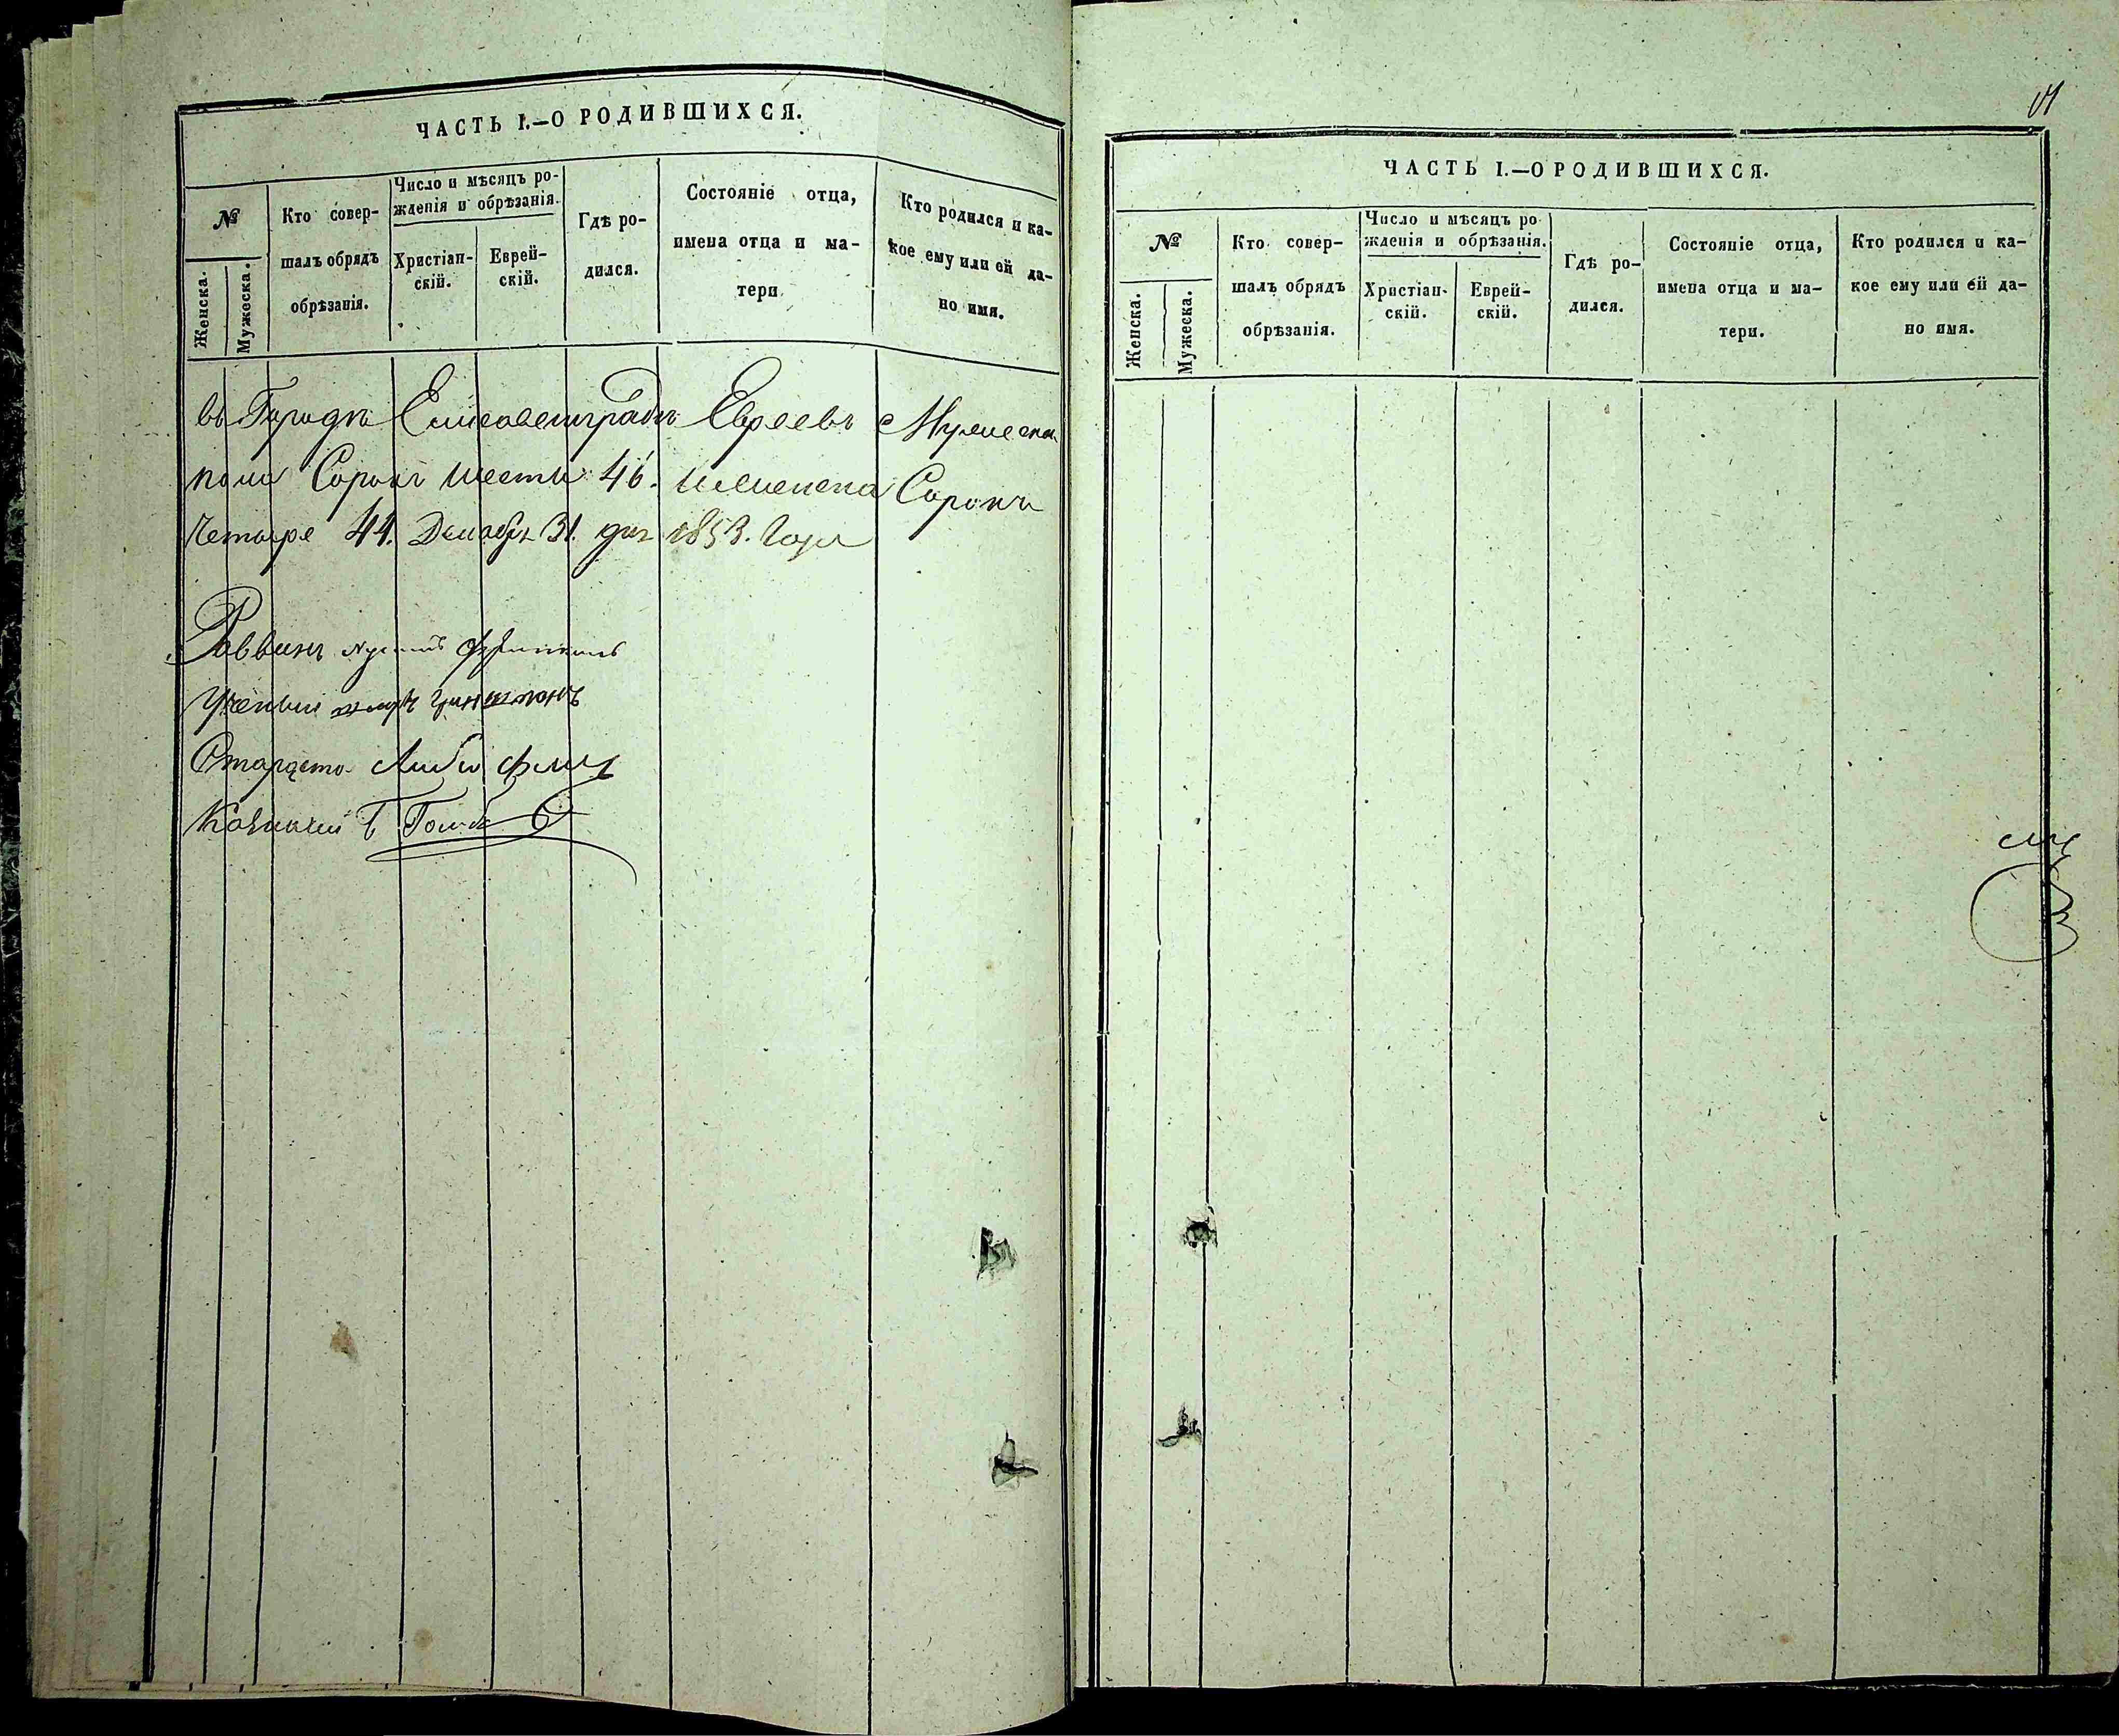 ЧАСТЬ I.—О РОДИВШИХСЯ.
№
Женска.
Мужеска.
Кто совер-
шалъ обрядъ
обрѣзанія.
Число и мѣсяцъ ро-
жденія и обрѣзанія.
Христіан-
скій.
Еврей-
скій.
Гдѣ ро-
дился.
Состояніе отца,
имена отца и ма-
тери
Кто родился и ка-
кое ему или ей да-
но имя.
въ Городѣ Елисаветградѣ Евреевъ Мужеска
пола Сорокъ шесть 46. и женска Сорокъ
четыре 44. Декабря 31. дня 1853. Года
Раввинъ
Ученый
Староста
Казначей
ЧАСТЬ I.—О РОДИВШИХСЯ.
№
Женска.
Мужеска.
Кто совер-
шалъ обрядъ
обрѣзанія.
Число и мѣсяцъ ро
жденія и обрѣзанія.
Христіан-
скій.
Еврей-
скій.
Гдѣ ро-
дился.
Состояніе отца,
имена отца и ма-
тери.
Кто родился и ка-
кое ему или ей да-
но имя.